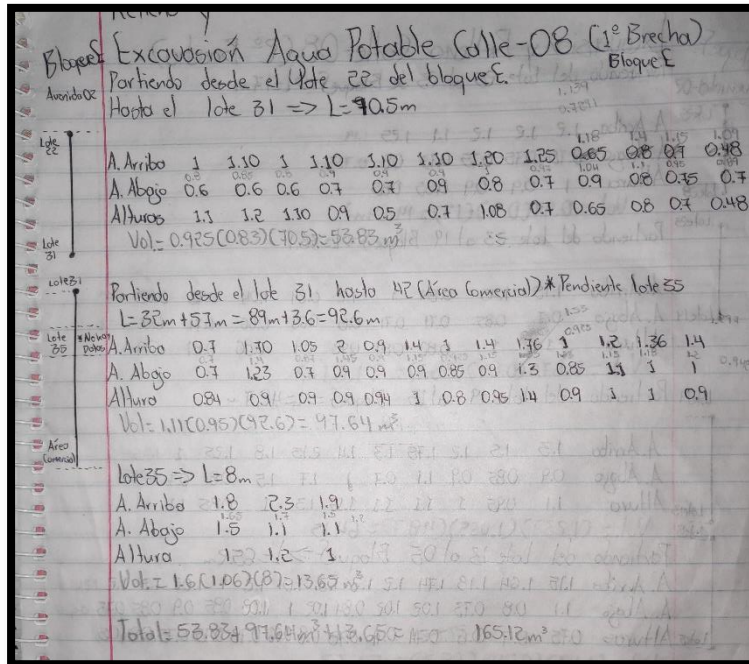 Relleno y
Excavasión Agua Potable Calle-08 (1° Brecha)
Bloque E
Bloque E
Partiendo desde el lote 22 del bloque E.
Avenida 02
Hasta el lote 31 => L=70.5m
Lote 22
1.18 1.4 1.15 1.09
A. Arriba 1 1.10 1 1.10 1.10 1.10 1.20 1.25 0.65 0.8 0.7 0.48
A. Abajo 0.6 0.6 0.6 0.7 0.7 0.9 0.8 0.7 0.9 0.8 0.75 0.7
Alturas 1.1 1.2 1.10 0.9 0.5 0.7 1.08 0.7 0.65 0.8 0.7 0.48
Vol= 0.925(0.83)(70.5)=53.83 m³
Lote 31
Lote 31
Partiendo desde el lote 31 hasta 42 (Área Comercial) * Pendiente lote 35
L=32m+57m=89m+3.6=92.6m
Lote 35
*Newos Datos
A. Arriba 0.7 1.70 1.05 2 0.9 1.4 1 1.4 1.76 1 1.2 1.36 1.4
A. Abajo 0.7 1.23 0.7 0.9 0.9 0.9 0.85 0.9 1.3 0.85 1.1 1 1
Altura 0.84 0.9 0.9 0.9 0.94 1 0.8 0.95 1.4 0.9 1 1 0.9
Vol= 1.11(0.95)(92.6)=97.64 m³
Área Comercial
Lote 35 => L=8m
A. Arriba 1.8 2.3 1.9
1.65 1.7 1.5
A. Abajo 1.5 1.1 1.1
Altura 1.2 1
Vol= 1.6(1.06)(8)=13.65 m³
Total= 53.83+97.64m³+13.65= 165.12m³